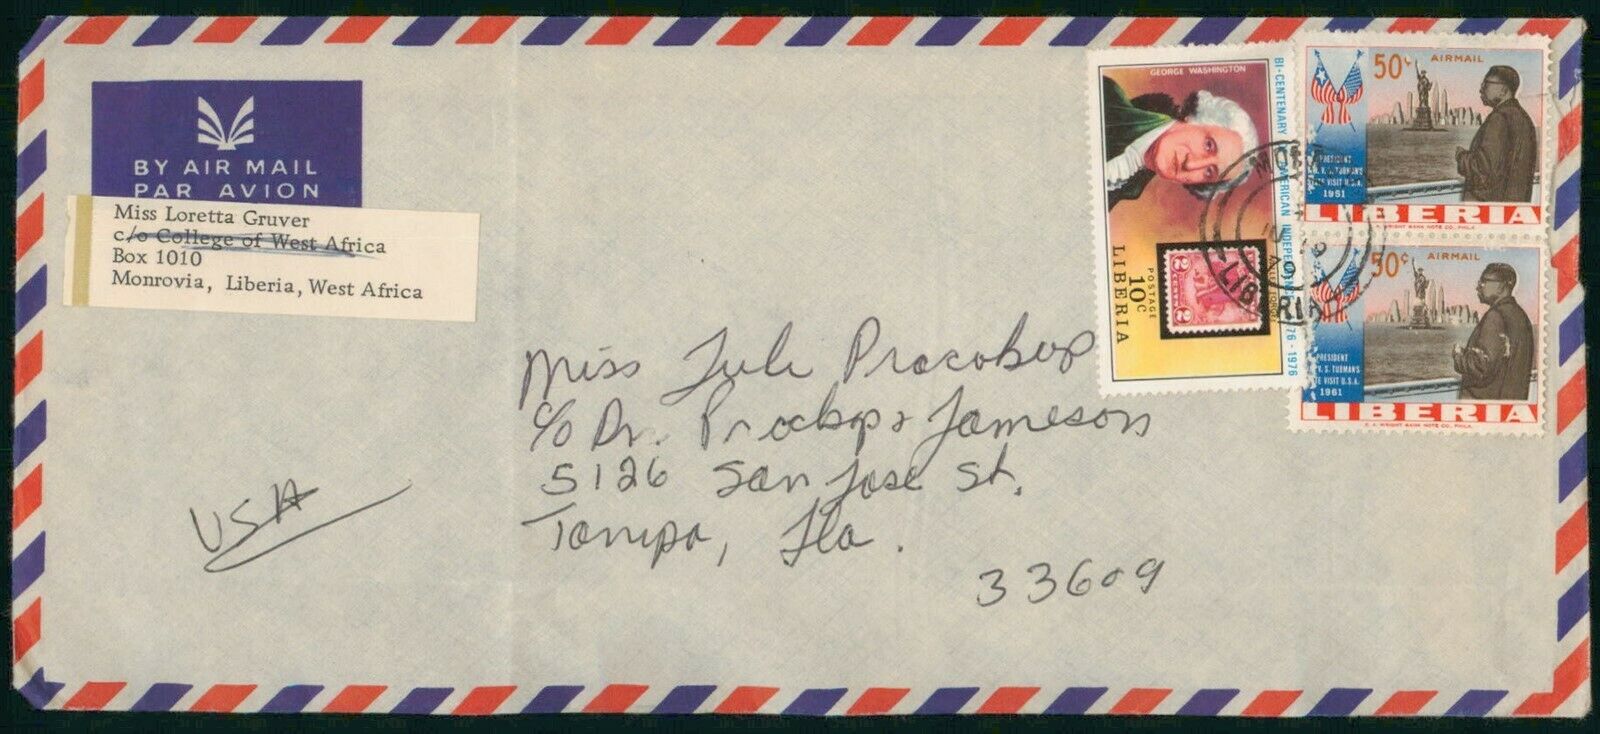 BY AIR MAIL
PAR AVION
Miss Loretta Gruver
c/o College of West Africa
Box 1010
Monrovia, Liberia, West Africa
GEORGE WASHINGTON
BI-CENTENARY OF AMERICAN INDEPENDENCE 1776-1976
POSTAGE
10c
LIBERIA
2 2
50c AIRMAIL
PRESIDENT
V. S. TUBMAN'S
STATE VISIT U.S.A.
1961
LIBERIA
E. A. WRIGHT BANK NOTE CO., PHILA.
50c AIRMAIL
PRESIDENT
V. S. TUBMAN'S
VISIT U.S.A.
1961
LIBERIA
E. A. WRIGHT BANK NOTE CO., PHILA.
LIBERIA
Miss Juli Procobop
c/o Dr. Jameson
5126 San Jose St.
Tampa, Fla.
33609
USA